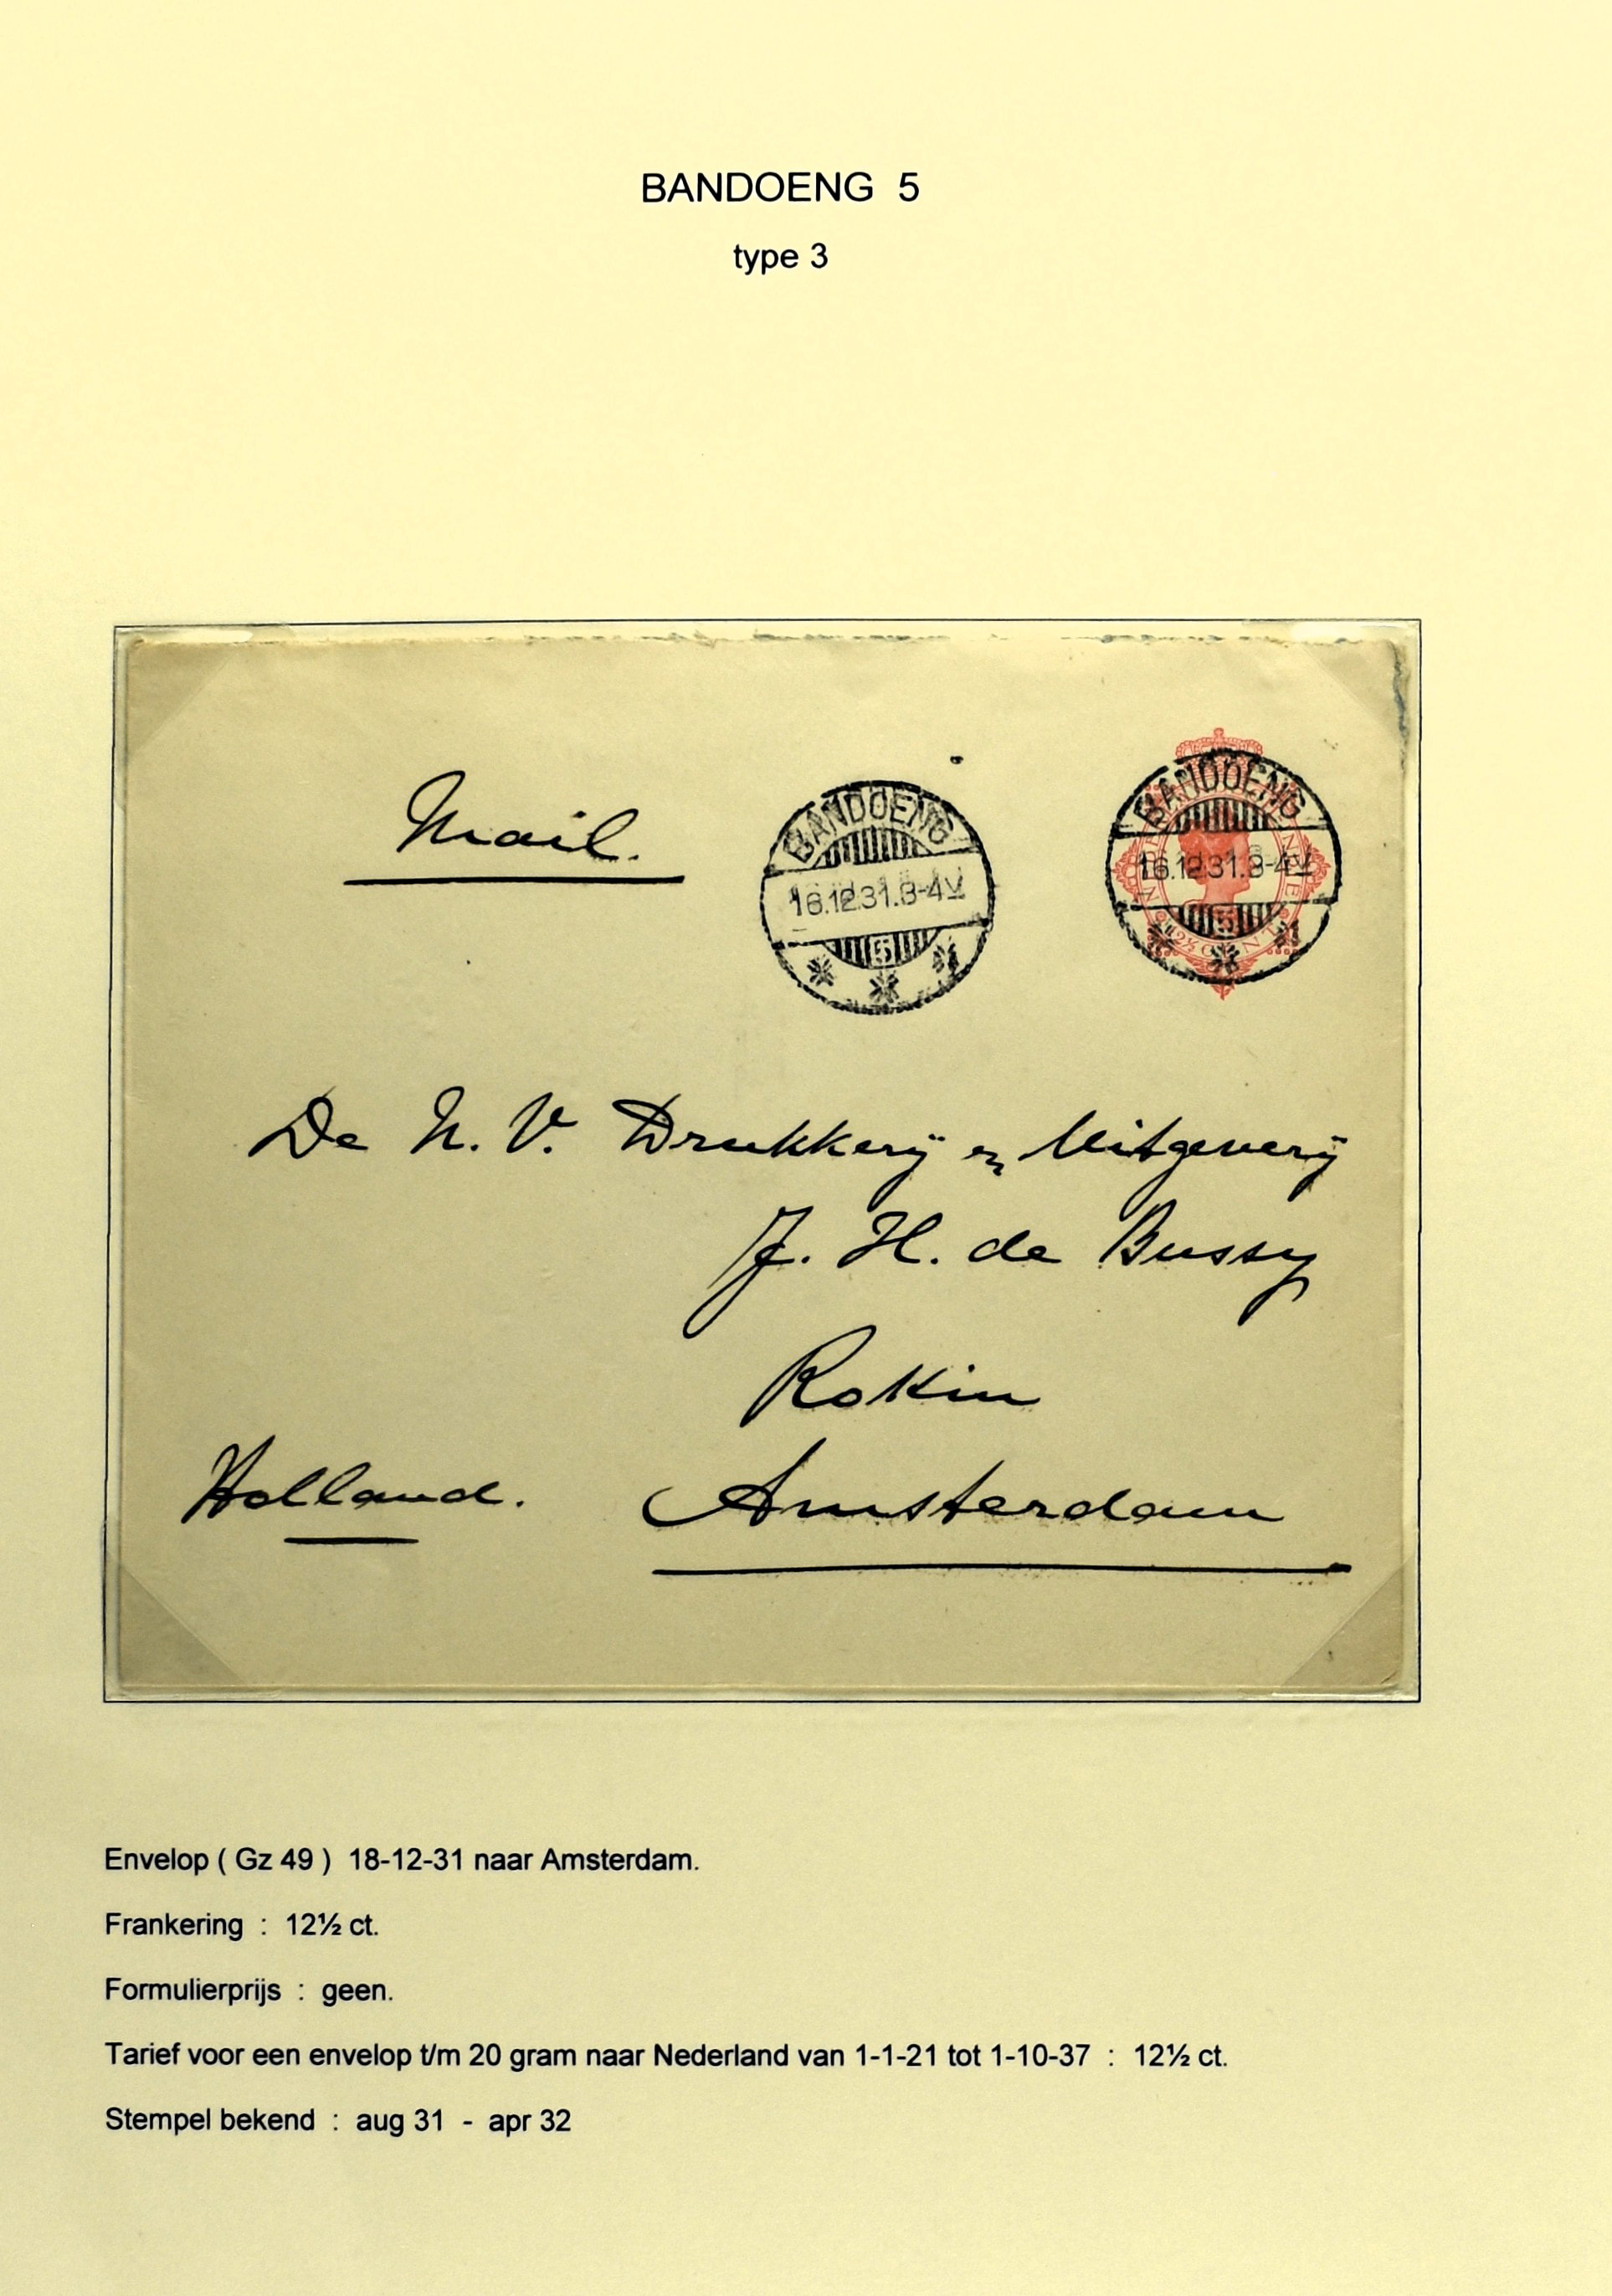 BANDOENG 5
type 3
Mail.
BANDOENG
16.12.31.3-4V
5
BANDOENG
16.12.31.3-4V
5
De N. V. Drukkerij en Uitgeverij
J. H. de Bussy
Rokin
Holland. Amsterdam
Envelop ( Gz 49 ) 18-12-31 naar Amsterdam.
Frankering : 12½ ct.
Formulierprijs : geen.
Tarief voor een envelop t/m 20 gram naar Nederland van 1-1-21 tot 1-10-37 : 12½ ct.
Stempel bekend : aug 31 - apr 32